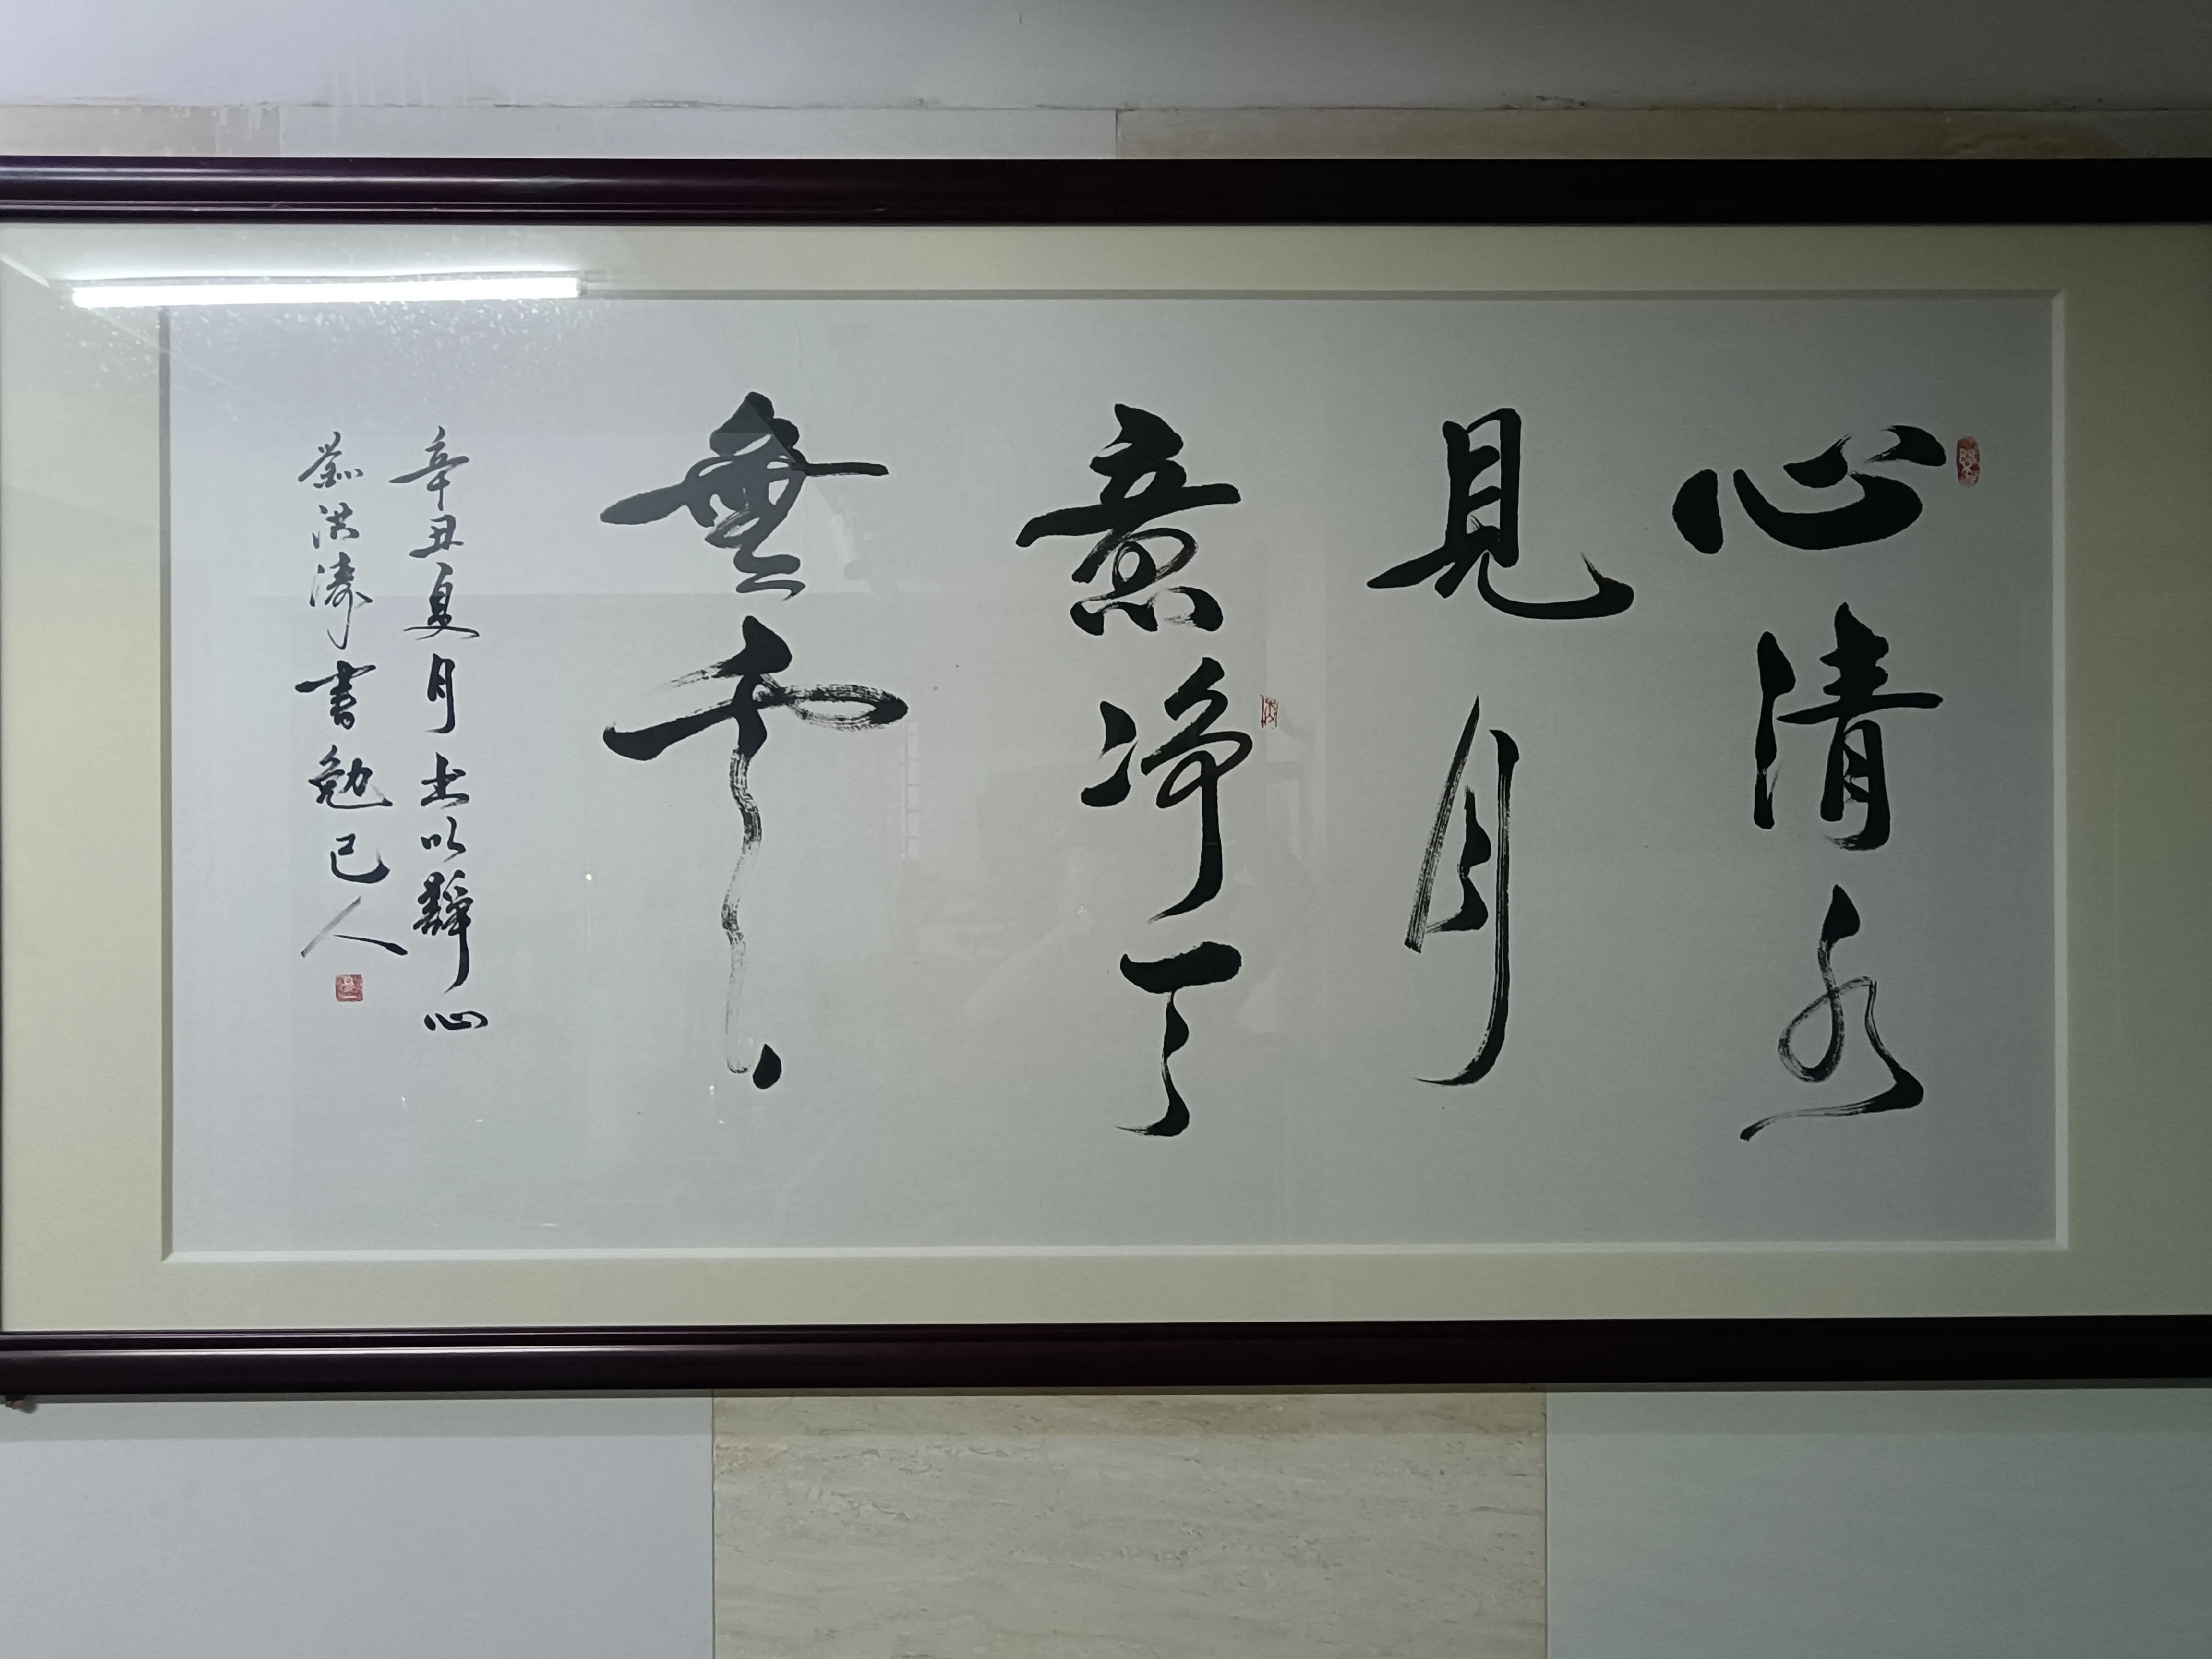 心清水
見月
意净天
無雲
辛丑夏月书以靜心
劉洪濤書勉己人